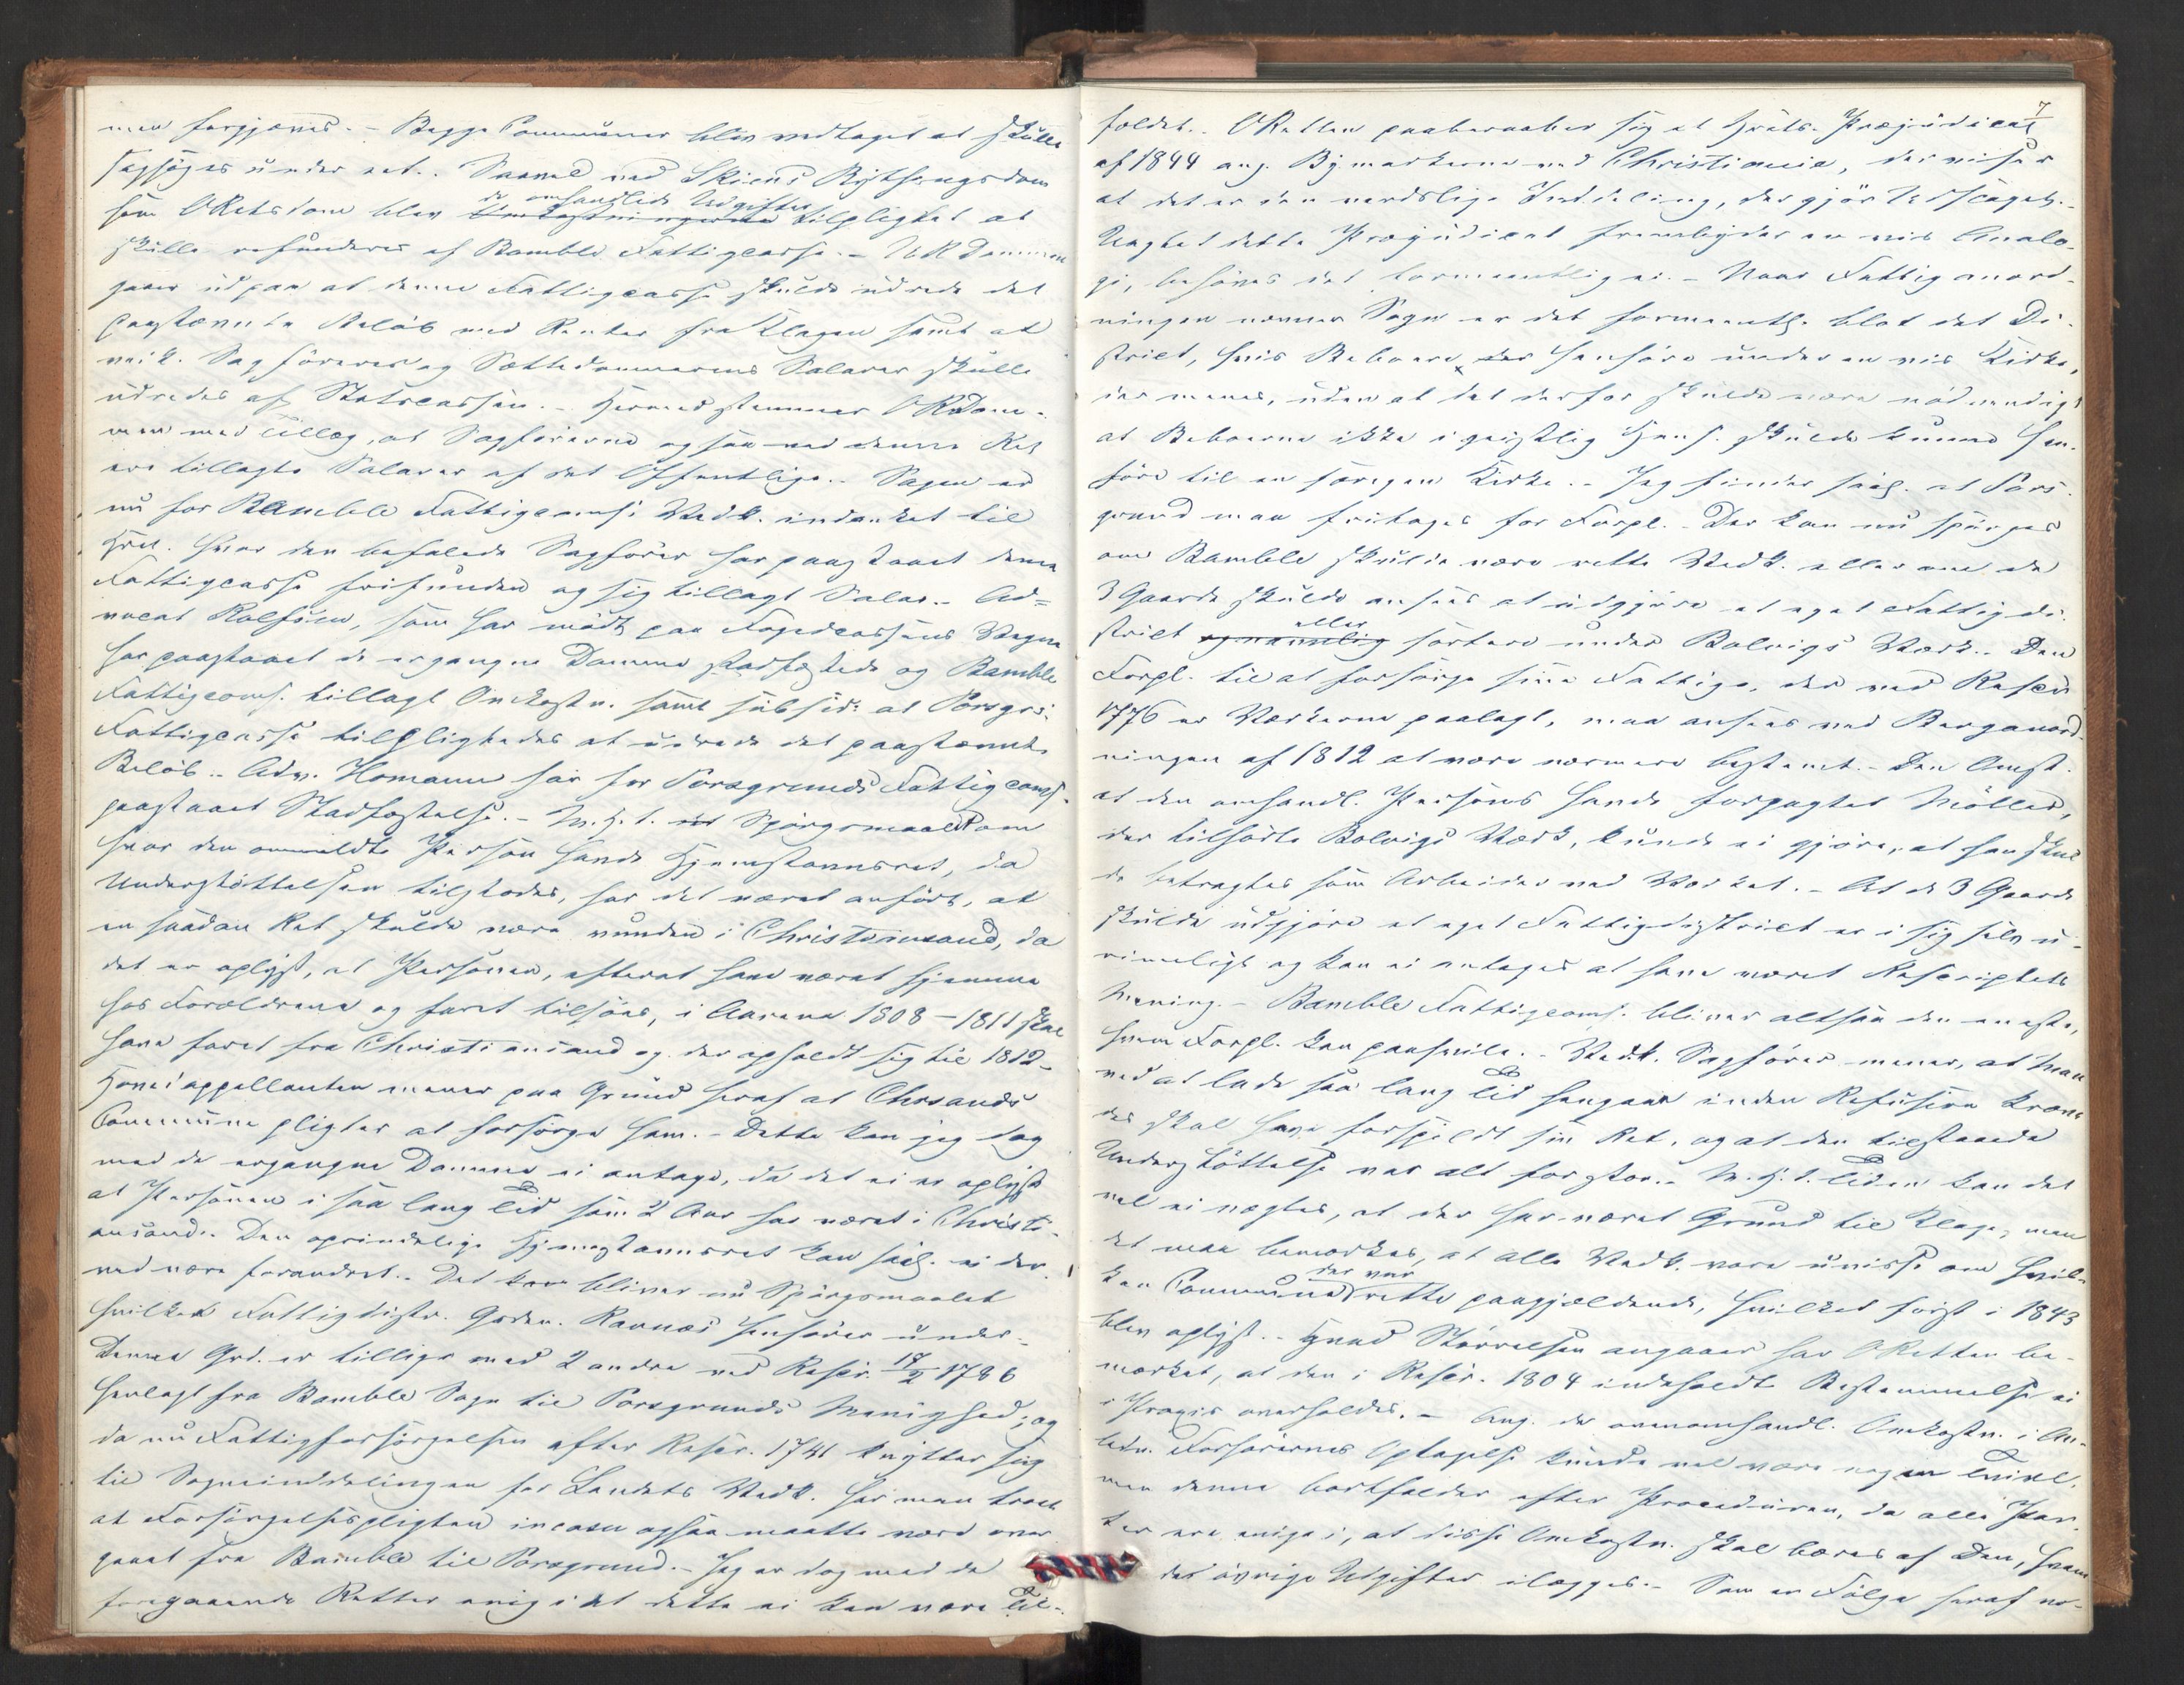 men forgjæves. - Begge Communer blev vedtaget at skulle
sagsøges under eet. - Saavel ved Skiens Bythingsdom
som ORetsdom blev Omkostningerne de omhandlede Udgifter tilpligtet at
skulle refunderes af Bamble Fattigcasse. - URDommen
gaaer ud paa at denne Fattigcasse skulde udrede det
paastævnte Beløb med Renter fra Klagen samt at
vedk. Sagførere og Sættedommerens Salarer skulle
udredes af Statscassen. - Hermed stemmer ORDom-
men med Tillæg, at Sagførerne ogsaa ved denne Ret
ere tillagte Salarer af det Offentlige. - Sagen er
nu for Bamble Fattigcomms. Vedk. indanket til
HRet. hvor den befalede Sagfører har paastaaet denne
Fattigcasse frifunden og sig tillagt Salar. - Ad-
vocat Rolfsen, som har mødt paa Fogedcassens Vegne
har paastaaet de ergangne Domme stadfæstede og Bamble
Fattigcoms. tillagt Omkostn. samt subsid: at Porsgr:
Fattigcasse tilpligtedes at udrede det paastævnte
Beløb. - Adv. Homann har for Porsgrunds Fattigcoms.
paastaaet Stadfæstelse. - M. H. t. det Spørgsmaalet om
hvor den ommeldte Person havde Hjemstavnsret, da
Understøttelsen tilstodes, har det været anført, at
en saadan Ret skulde være vunden i Christiansand, da
det er oplyst, at Personen, efterat have været hjemme
hos Forældrene og faret tilsøes, i Aarene 1808-1811 skal
have faret fra Christiansand og der opholdt sig til 1812.
Hovedappellanten mener paa Grund heraf at Chrsands
Commune pligter at forsørge ham. - Dette kan jeg dog
med de ergangne Domme ei antage, da det ei er oplyst
at Personen i saa lang Tid som 2 Aar har været i Christi-
ansand. Den oprindelige Hjemstavnsret kan saal. ei der-
ved være forandret. - Det kan bliver nu Spørgsmaalet
hvilket Fattigdistr. Grden. Ravnæs henhører under. -
Denne Grd. er tillige med 2 andre ved Rescr. 17/2 1786
henlagt fra Bamble Sogn til Porsgrunds Menighed; og
da nu Fattigforsørgelsen efter Rescr. 1741 knytter sig
til Sogneinddelingen for Landets Vedk. har man troet
at Forsørgelsespligten in casu ogsaa maatte være over
gaaet fra Bamble til Porsgrund. - Jeg er dog med de
foregaaende Retter enig i at dette ei kan være Til-
7
foldet. ORetten paaberaaber sig et Hrets. Præjudicat
af 1844 ang. Bymarkerne ved Christiania, der viser
at det er den verdslige Inddeling, der gjør Udslaget. -
Uagtet dette Præjudicat frembyder en vis Analo-
gi, behøves det formeentlig ei. - Naar Fattiganord-
ningen nævner Sogn er det formeentl. blot det Di-
strict, hvis Beboere der henhøre under en vis Kirke,
der menes, uden at det derfor skulde være nødvendigt
at Beboerne ikke i geistlig Hens. skulde kunne hen-
høre til en særegen Kirke. - Jeg finder saal. at Pors-
grund maa fritages for Forpl. - Der kan nu spørges
om Bamble skulde være rette Vedk. eller om de
3 Gaarde skulde ansees at udgjøre et eget Fattigdi-
strict og navnlig eller sortere under Bolvigs Værk. - Den
Forpl. til at forsørge sine Fattige, der ved Rescr.
1776 er Værkerne paalagt, maa ansees ved Berganord-
ningen af 1812 at være nærmere bestemt. - Den Omst.
at den omhandl. Persons havde forpagtet Møller,
der tilhørte Bolvigs Værk, kunde ei gjøre, at han skul
de betragtes som Arbeider ved Værket. - At de 3 Gaarde
skulde udgjøre et eget Fattigdistrict er i sig selv u-
rimeligt og kan ei antages at have været Rescriptets
Mening. - Bamble Fattigcoms. bliver altsaa den eneste,
hvem Forpl. kan paahvile. - Vedk. Sagfører mener, at Man
ved at lade saa lang Tid hengaae inden Refusion kræve
des skal have forspildt sin Ret, og at den tilstaaede
Understøttelse var alt for stor. - M. H. t. Tiden kan det
vel ei nægtes, at der har været Grund til Klage, men
det maa bemærkes, at alle Vedk. vare uvisse om hvil-
ken Commune der var rette paagjældende, hvilket først i 1843
blev oplyst. - Hvad Størrelsen angaaer har ORetten be-
mærket, at den i Rescr. 1804 indeholdt Bestemmelse ei
i Praxis overholdes. - Ang. de ovenomhandl. Omkostn. i An-
ledn. Forhørernes Optagelse kunde vel være nogen Tvivl,
men denne bortfalder efter Proceduren, da alle Par-
ter ere enige i, at disse Omkostn. skal bæres af Den, hvem
det øvrige Udgifter ilægges. - Som en Følge heraf vo-